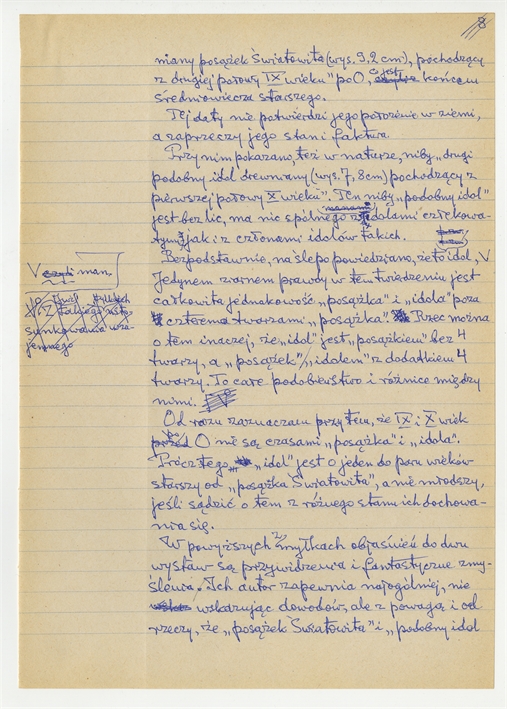 8
niany posążek Światowita (wys. 9,2 cm), pochodzący
z drugiej połowy IX wieku" po O, co jest końcem
średniowiecza starszego.
Tej daty nie potwierdzi jego położenie w ziemi,
a zaprzeczy jego stan i faktura.
Przy nim pokazano, też w naturze, niby „drugi
podobny idol drewniany (wys. 7,8 cm) pochodzący z
pierwszej połowy X wieku". Ten niby „podobny idol"
jest bez lic, ma nic spólnego z idolami człekowa-
tymi jak i z członami idolów takich.
Bezpodstawnie, na ślepo powiedziano, że to idol, V
V man,
Jedynem ziarnem prawdy w tem twierdzeniu jest
całkowita jednakowość „posążka" i „idola" poza
czterema twarzami „posążka". Rzec można
o tem inaczej, że „idol" jest „posążkiem" bez 4
twarzy, a „posążek" „idolem" z dodatkiem 4
twarzy. To całe podobieństwo i różnice między
nimi.
Od razu zaznaczam przy tem, że IX i X wiek
po O nie są czasami „posążka" i „idola".
Prócz tego „idol" jest o jeden do paru wieków
starszy od „posążka Światowita", a nie młodszy,
jeśli sądzić o tem z różnego stanu ich dochowa-
nia się.
W powyższych zmyłkach objaśnień do dwu
wystaw są przywidzenia i fantastyczne zmy-
ślenia. Ich autor zapewnia najogólniej, nie
wskazując dowodów, ale z powagą i od
rzeczy, że „posążek Światowita" i „podobny idol